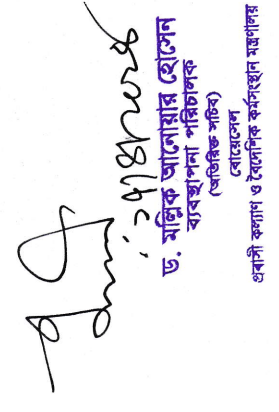 ড. মল্লিক আনোয়ার হোসেন
ব্যবস্থাপনা পরিচালক
(অতিরিক্ত সচিব)
বোয়েসেল
প্রবাসী কল্যাণ ও বৈদেশিক কর্মসংস্থান মন্ত্রণালয়